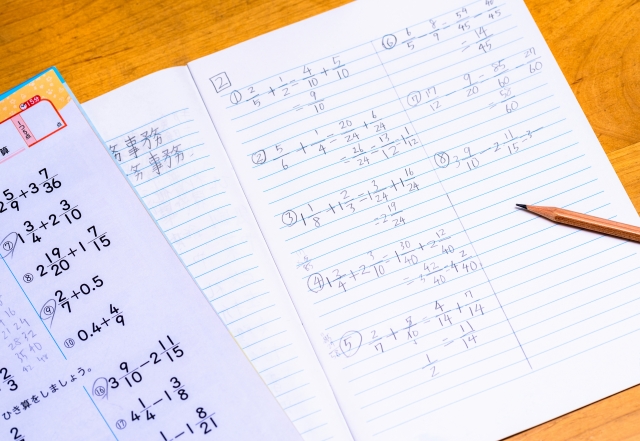 15分
算
2 5/9 + 3 7/36
⑦ 1 3/4 + 2 3/10
⑧ 2 19/20 + 1 7/15
⑨ 2/7 + 0.5
⑩ 0.4 + 4/9
ひき算をしましょう。
⑯ 3 9/10 - 2 11/15
⑰ 4 1/4 - 1 3/8
1 - 1 8/21
務事務
務事務
2
① 2/5 + 1/2 = 4/10 + 5/10
= 9/10
② 5/6 + 1/4 = 20/24 + 6/24
= 26/24 = 13/12 = 1 1/12
③ 1 1/8 + 1 2/3 = 1 3/24 + 1 16/24
= 2 19/24
④ 1 3/4 + 2 3/10 = 1 30/40 + 2 12/40
= 3 42/40 = 4 2/40
⑤ 2/7 + 5/10 = 4/14 + 7/14
= 11/14
1/2
⑥ 6/5 - 8/9 = 54/45 - 40/45
= 14/45
⑦ 17/12 - 9/20 = 85/60 - 27/60
= 58/60
⑧ 3 9/10 - 2 11/15 = 3